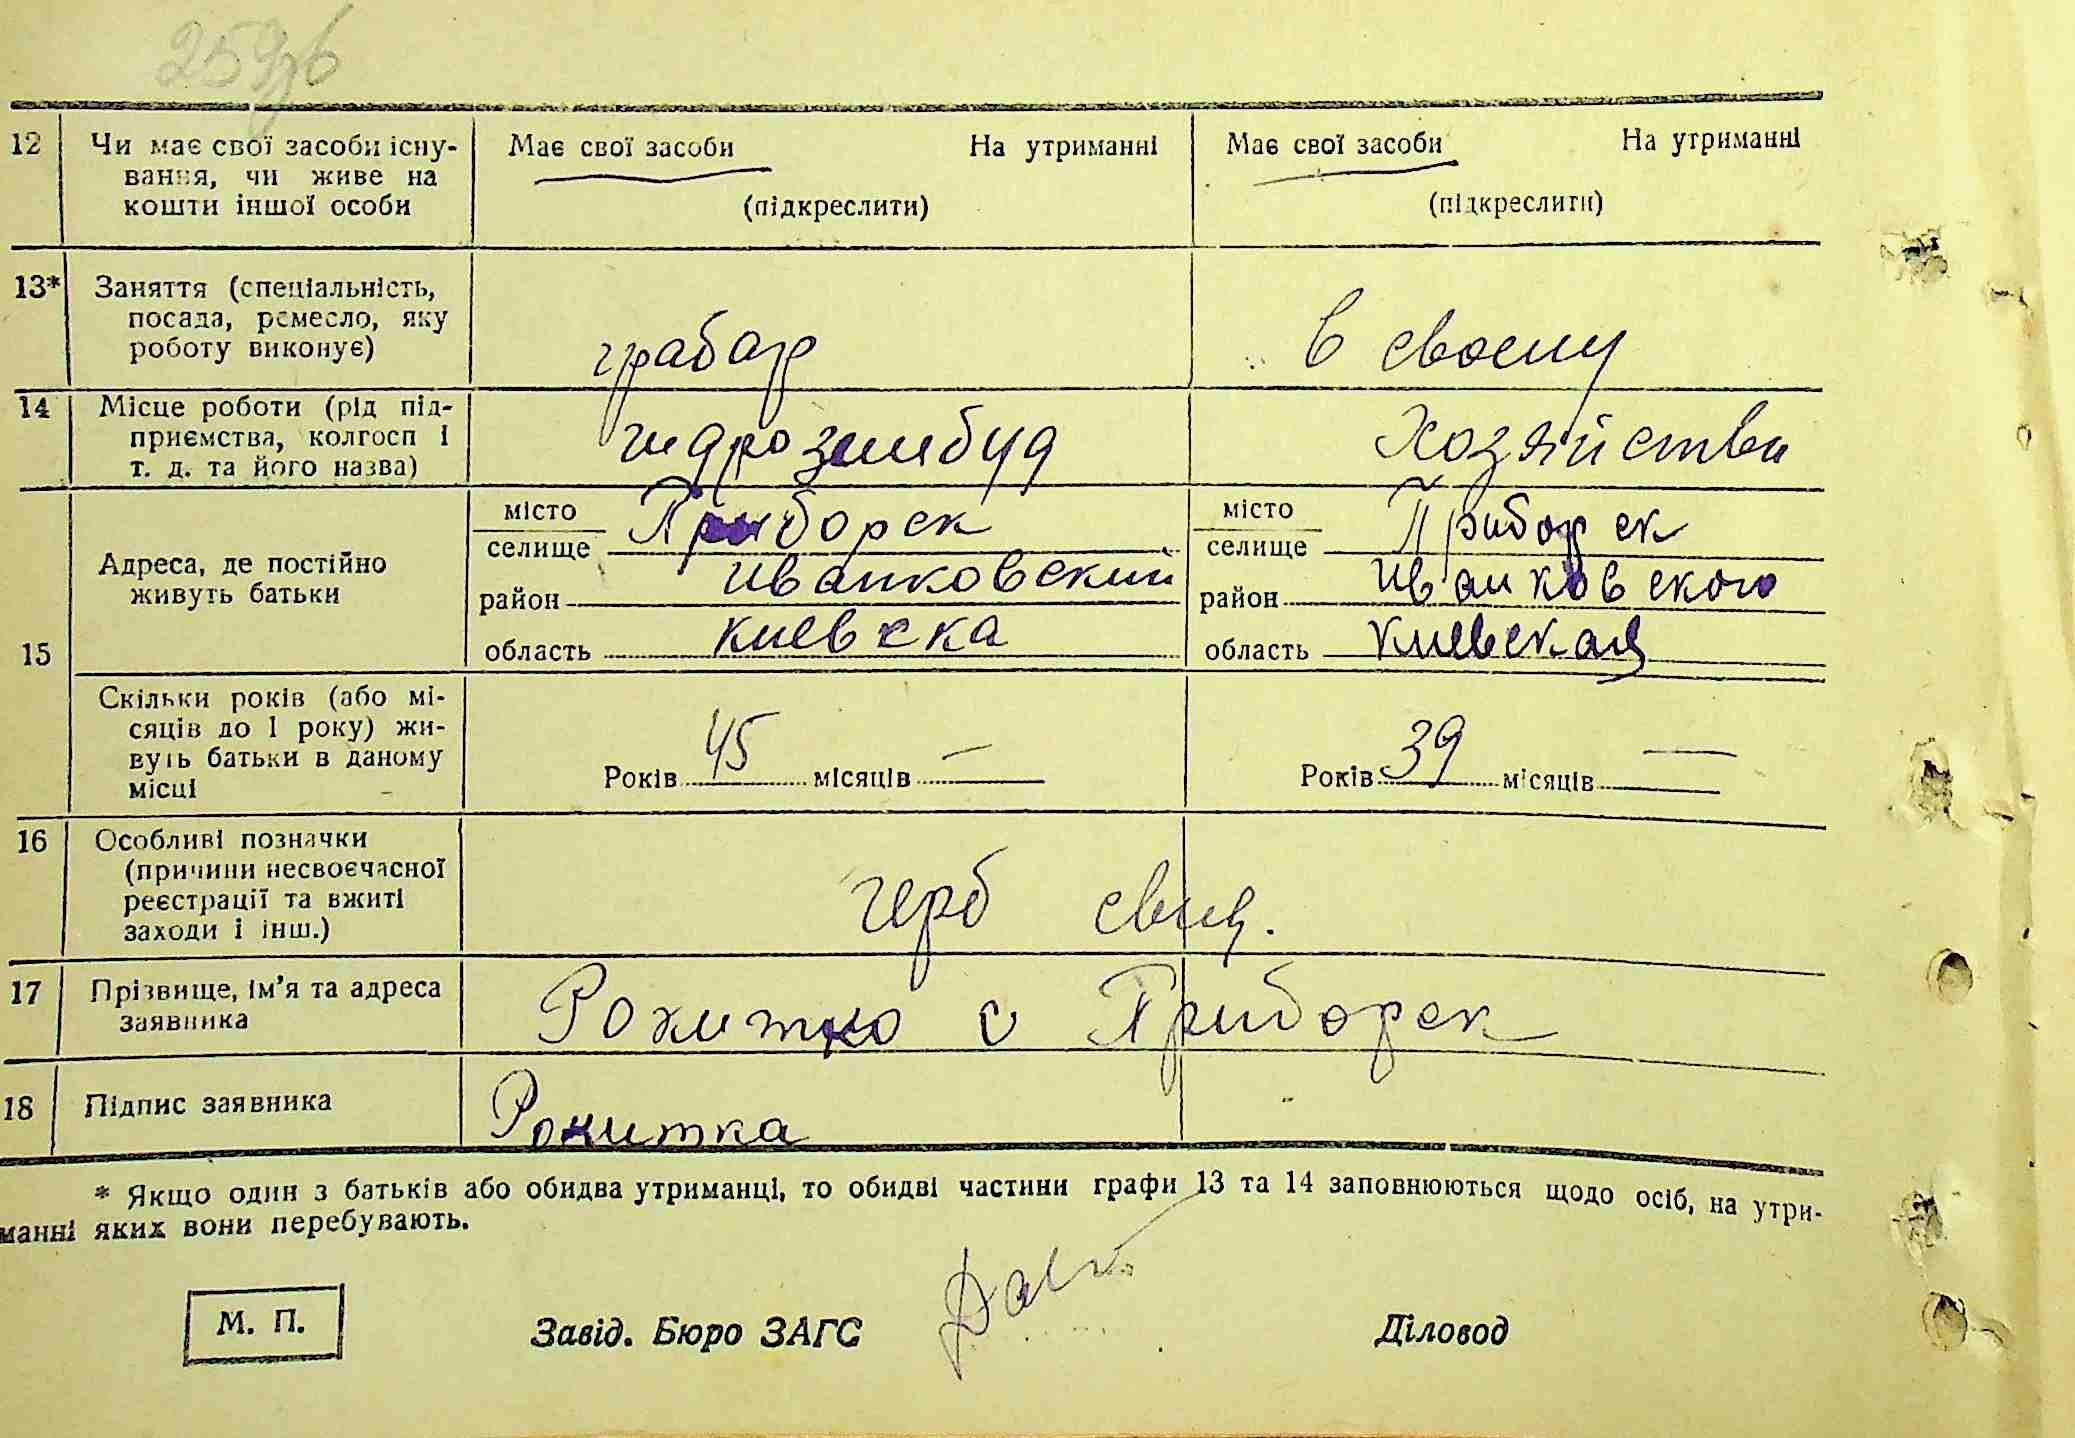 12 Чи має свої засоби існу- Має свої засоби На утриманні Має свої засоби На утриманні
вання, чи живе на
кошти іншої особи (підкреслити) (підкреслити)
13* Заняття (спеціальність,
посада, ремесло, яку
роботу виконує) грабар в своему
14 Місце роботи (рід під-
приємства, колгосп і гидрозимбуд Хозяйстви
т. д. та його назва)
15 Адреса, де постійно
живуть батьки
місто Приборск місто Приборск
селище селище
район иванковский район иванковского
область киевска область киевская
Скільки років (або мі-
сяців до 1 року) жи-
вуть батьки в даному
місці
Років 45 місяців — Років 39 місяців —
16 Особливі позначки
(причини несвоєчасної
реєстрації та вжиті
заходи і інш.)
герб свид.
17 Прізвище, ім’я та адреса
заявника
Рокитко с Приборск
18 Підпис заявника Рокитка
* Якщо один з батьків або обидва утриманці, то обидві частини графи 13 та 14 заповнюються щодо осіб, на утри-
манні яких вони перебувають.
М. П. Завід. Бюро ЗАГС Діловод